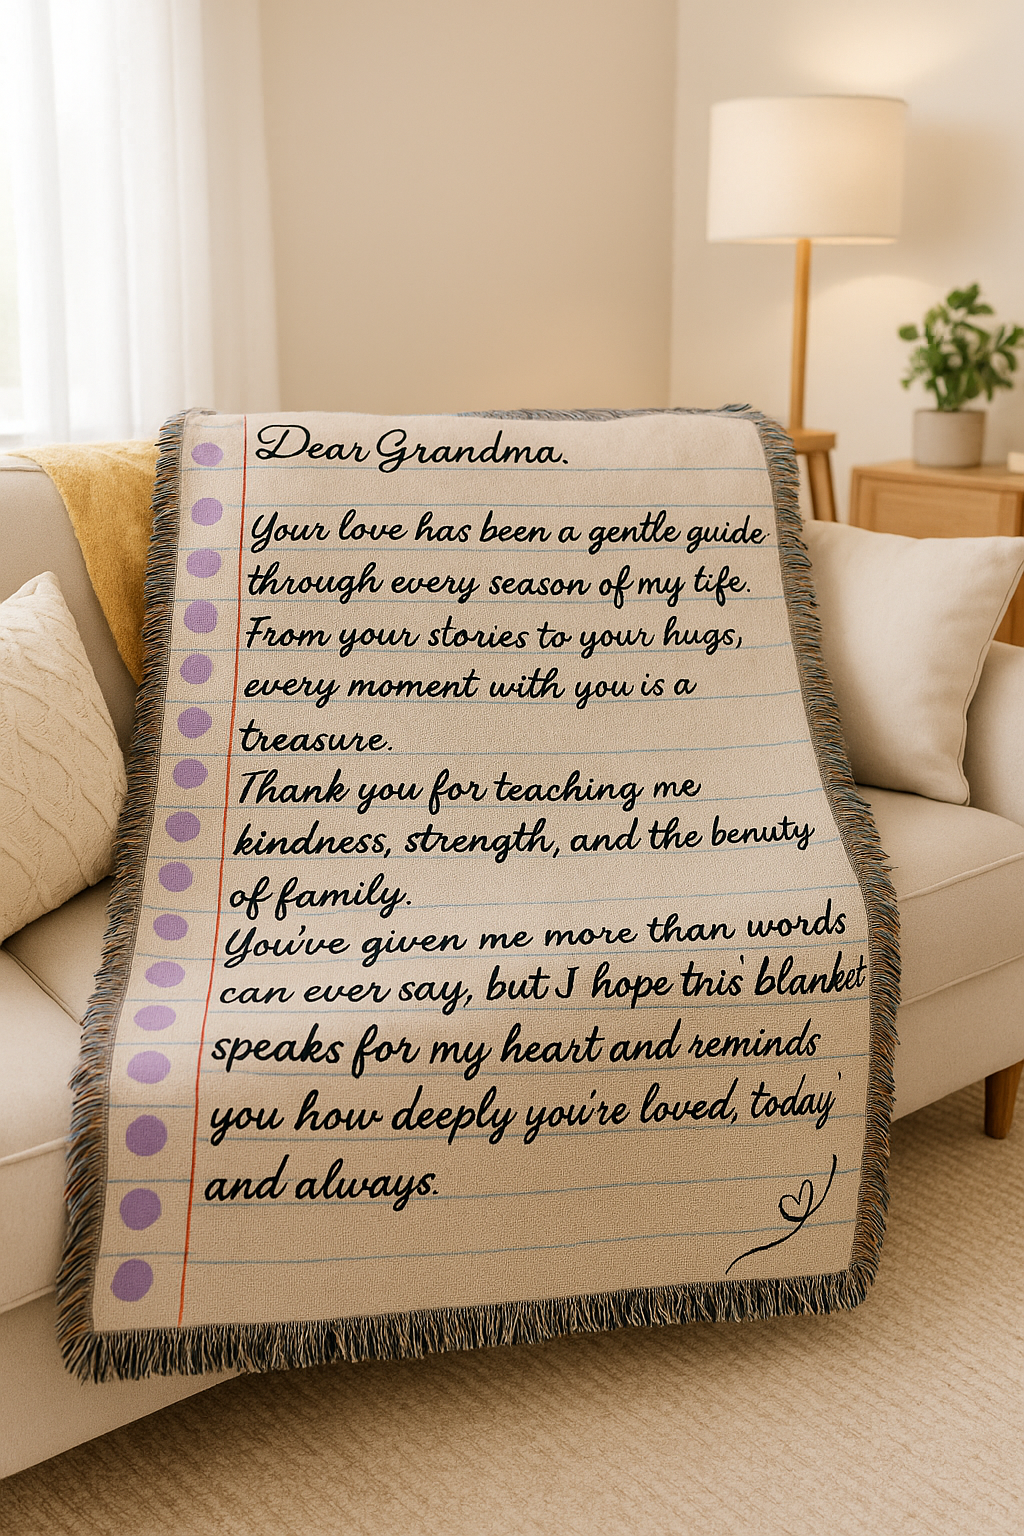 Dear Grandma.
Your love has been a gentle guide
through every season of my tife.
From your stories to your hugs,
every moment with you is a
treasure.
Thank you for teaching me
kindness, strength, and the benuty
of family.
You've given me more than words
can ever say, but I hope this' blanket
speaks for my heart and reminds
you how deeply you're loved, today'
and always.